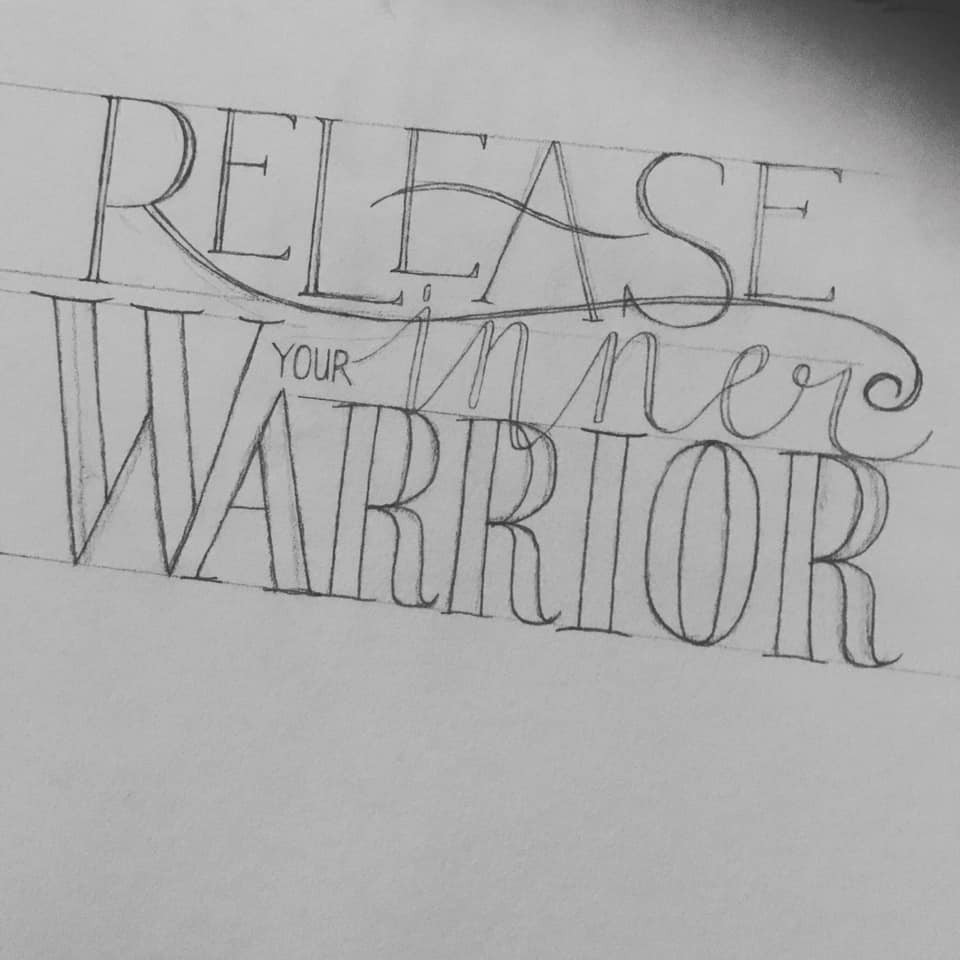 RELEASE
YOUR inner
WARRIOR